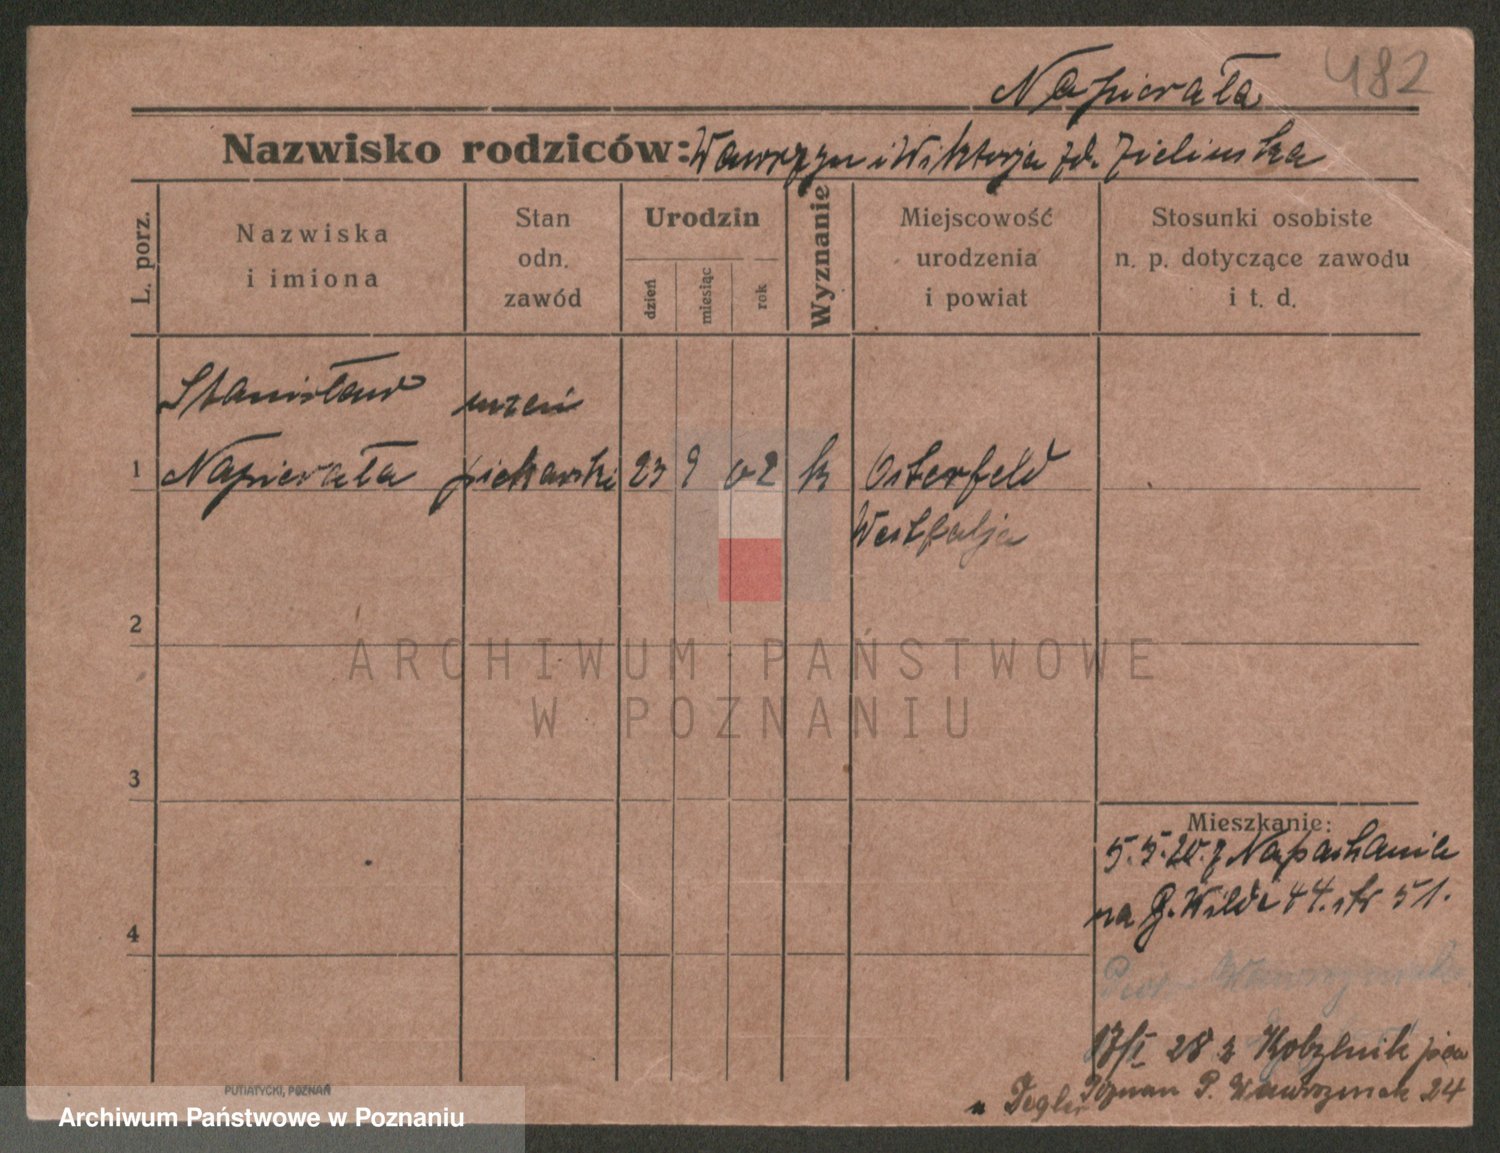 482
Napierała
Nazwisko rodziców: Wawrzyn i Wiktorja zd. Zielinska
L. porz.
Nazwiska
i imiona
Stan
odn.
zawód
Urodzin
dzień
miesiąc
rok
Wyznanie
Miejscowość
urodzenia
i powiat
Stosunki osobiste
n. p. dotyczące zawodu
i t. d.
Stanisław uczeń
1 Napierała piekarski 23 9 02 k Osterfeld
Westfalja
2
3
4
Mieszkanie:
5.5.20. z Napachanie
na G. Wilda 44. str 51.
Piotr Wawrzyniak
17/I 28 z Kobylnik
Poznan P. Wawrzyniak 24
u Tegler
PUTIATYCKI, POZNAŃ
ARCHIWUM PAŃSTWOWE
W POZNANIU
Archiwum Państwowe w Poznaniu